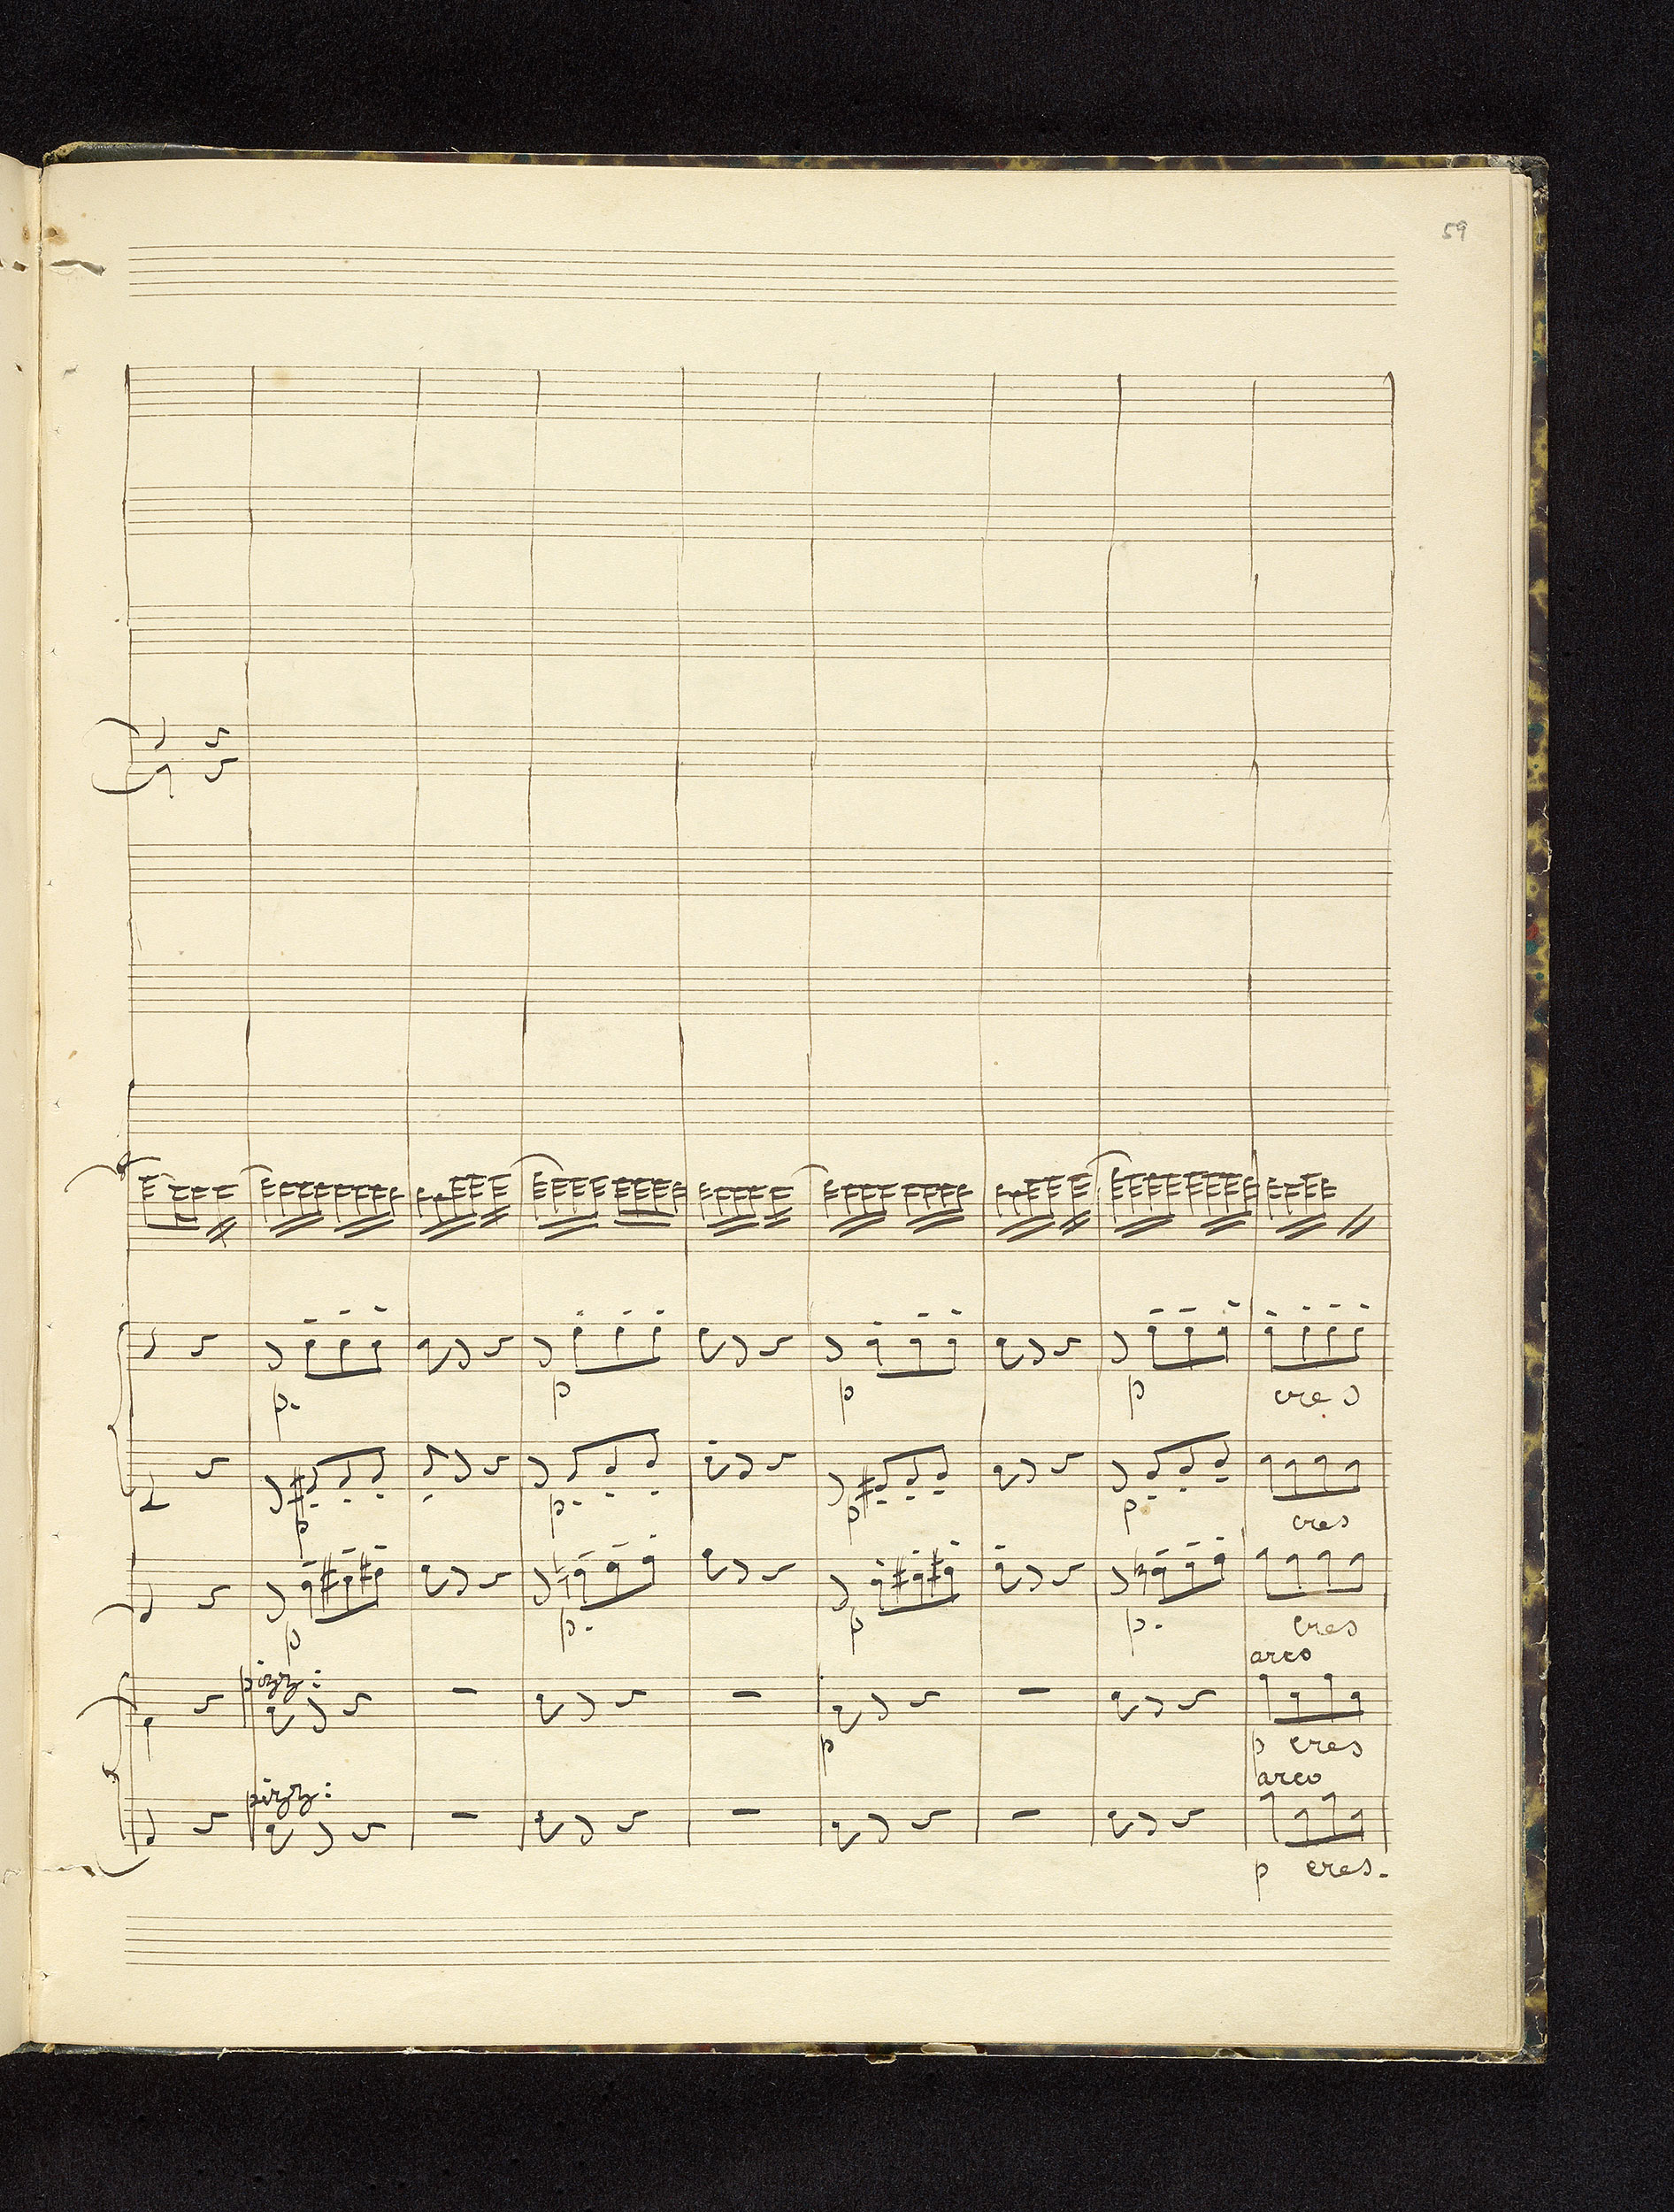 59
p. p p p cres
p p. p p. cres
p p. p p. cres
arco
pizz:
p p cres
arco
pizz:
p cres.